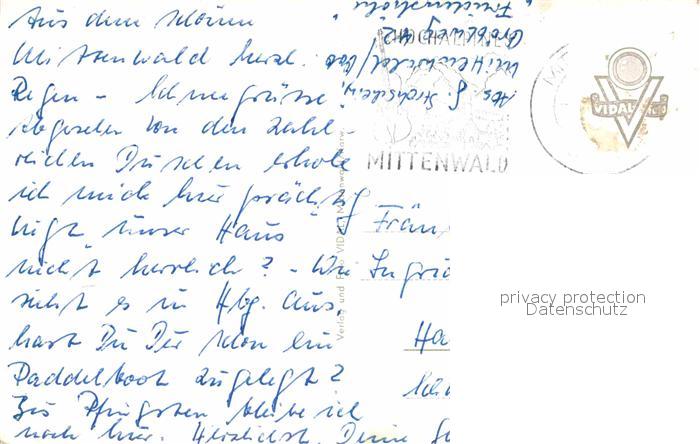 Aus dem schönen
Mittenwald herzl.
Regen - Schneegrüsse
abgesehen von den zahl-
reichen Duschen erhole
ich mich hier prächtig
liegt unser Haus
nicht herrlich? - Wie
sieht es in Hbg. aus,
hast Du Dir schon ein
Paddelboot zugelegt?
Bis Pfingsten bleibe ich
noch hier. Herzlichst, Deine
Abs. G.
Mittenwald/Obb
42
"Friedenshöhe"
HOCHALM
MITTENWALD
VIDAL
Verlag und Foto VIDAL Mittenwald
Fräu
Ingrid
Ha
privacy protection
Datenschutz